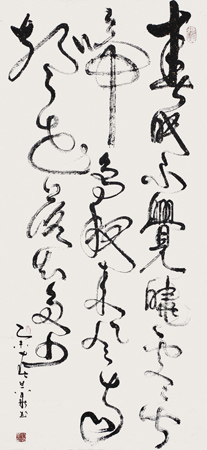 春眠不覺曉處々聞
啼鳥夜來風雨
聲花落知多少
乙未